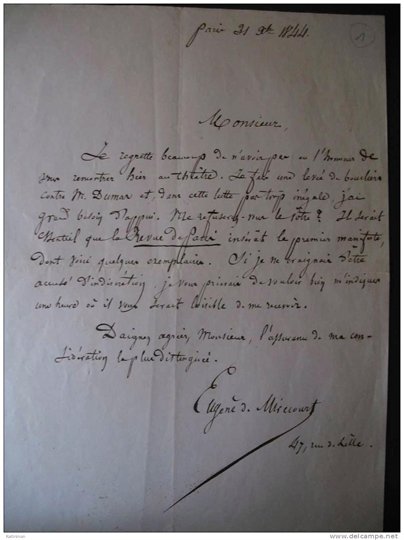 Paris 31 Xbre 1844
1
Monsieur,
Je regrette beaucoup de n'avoir pas eu l'honneur de
vous rencontrer hier au théâtre. Je fais une levée de boucliers
contre M. Dumas et, dans cette lutte par trop inégale, j'ai
grand besoin d'appui. Me refuserez-vous le vôtre ? Il serait
essentiel que la Revue de Paris insérât le premier manifeste,
dont voici quelques exemplaires. Si je ne craignais d'être
accusé d'indiscrétion, je vous prierais de vouloir bien m'indiquer
une heure où il vous serait loisible de me recevoir.
Daignez agréer, Monsieur, l'assurance de ma con-
sidération la plus distinguée.
Eugène de Mirecourt
47, rue de Lille.
delcampe.net